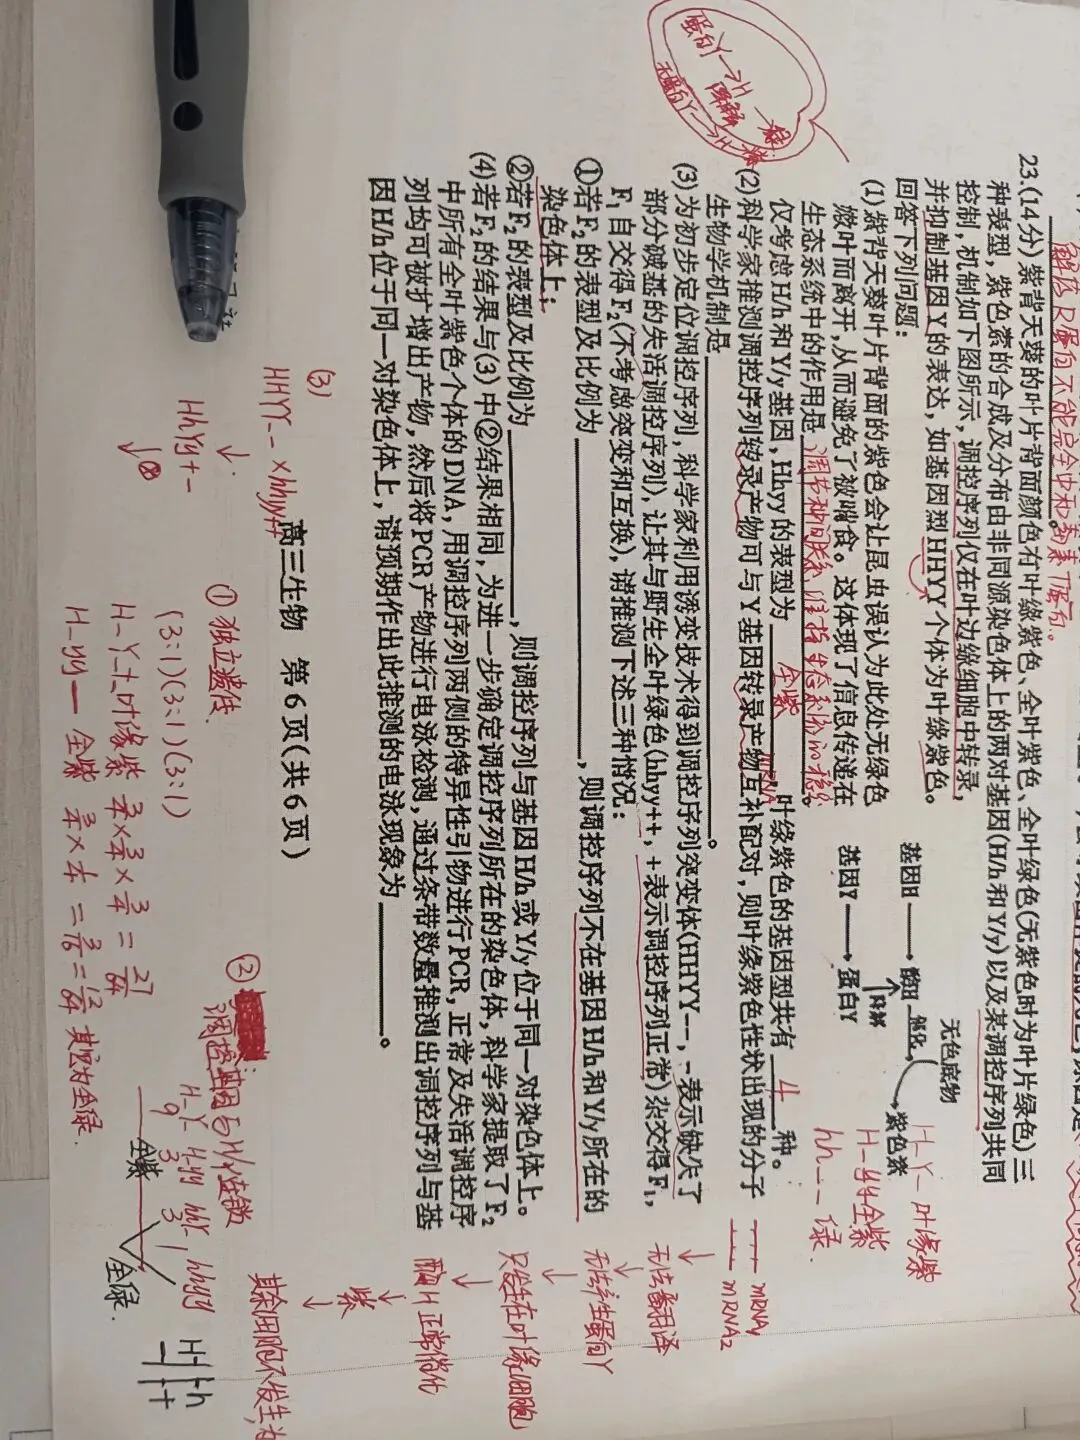 解法 R蛋白不能完全中和毒素
23.(14分)紫背天葵的叶片背面颜色有叶缘紫色、全叶紫色、全叶绿色(无紫色时为叶片绿色)三
种表型,紫色素的合成及分布由非同源染色体上的两对基因(H/h和Y/y)以及某调控序列共同
控制,机制如下图所示,调控序列仅在叶边缘细胞中转录,
并抑制基因Y的表达,如基因型HHYY个体为叶缘紫色。
回答下列问题:
基因H → 酶H 催化
无色底物
紫色素
降解
基因Y → 蛋白Y
H-Y- 叶缘紫
H-yy全紫
hh-- 绿
(1)紫背天葵叶片背面的紫色会让昆虫误认为此处无绿色
嫩叶而离开,从而避免了被啃食。这体现了信息传递在
生态系统中的作用是调节种间关系,维持生态系统的稳定。
仅考虑H/h和Y/y基因,Hhyy的表型为全紫,叶缘紫色的基因型共有4种。
(2)科学家推测调控序列转录产物可与Y基因转录产物互补配对,则叶缘紫色性状出现的分子
生物学机制是
(3)为初步定位调控序列,科学家利用诱变技术得到调控序列突变体(HHYY--,-表示缺失了
部分碱基的失活调控序列),让其与野生全叶绿色(hhyy++,+表示调控序列正常)杂交得F₁,
F₁自交得F₂(不考虑突变和互换),请推测下述三种情况:
①若F₂的表型及比例为,则调控序列不在基因H/h和Y/y所在的
染色体上;
②若F₂的表型及比例为,则调控序列与基因H/h或Y/y位于同一对染色体上。
(4)若F₂的结果与(3)中②结果相同,为进一步确定调控序列所在的染色体,科学家提取了F₂
中所有全叶紫色个体的DNA,用调控序列两侧的特异性引物进行PCR,正常及失活调控序
列均可被扩增出产物,然后将PCR产物进行电泳检测,通过条带数量推测出调控序列与基
因H/h位于同一对染色体上,请预期作出此推测的电泳现象为。
高三生物 第6页(共6页)
蛋白Y→H
降解
无蛋白Y→H
mRNA
mRNAy
mRNA2
↓
无法翻译
↓
无法产生蛋白Y
↓
只发生在叶缘细胞
↓
酶H正常催化
↓
紫
↓
其余细胞不发生,为
(3)
HHYY-- × hhyy++
↓
HhYy+-
↓⊗
① 独立遗传.
(3:1)(3:1)(3:1)
H-Y-+_叶缘紫 3/4×3/4×3/4=27/64
H-yy— 全紫 3/4×1/4=3/16=12/64 其余为全绿.
②
调控基因与H/Y连锁
H-Y- H-yy hhY- hhyy
9 3 3 1
全紫
全绿.
H h
- +